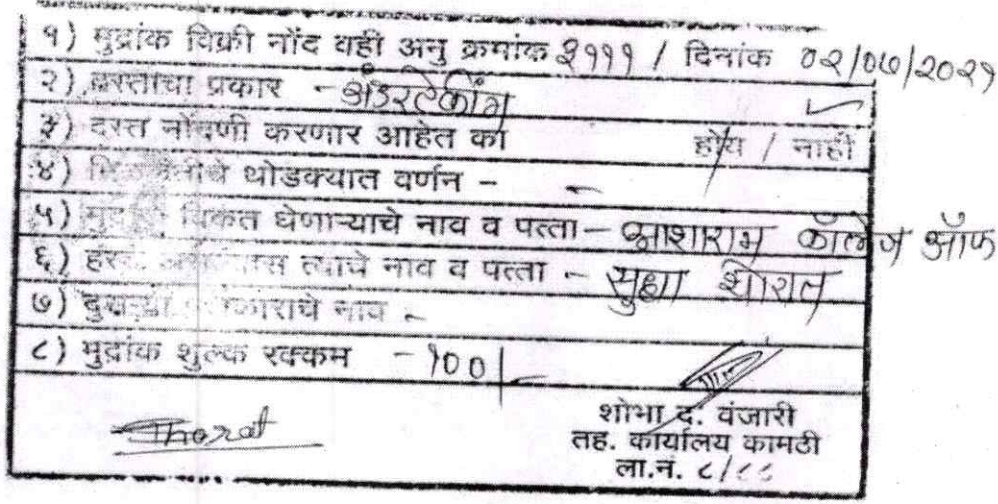 १) मुद्रांक विक्री नोंद वही अनु क्रमांक २१११ / दिनांक ०२/०७/२०२१
२) दस्ताचा प्रकार - अंडरटेकींग
३) दस्त नोंदणी करणार आहेत का होय / नाही
४) थोडक्यात वर्णन -
५) विकत घेणाऱ्याचे नाव व पत्ता - आशाराम कॉलेज ऑफ
६) त्याचे नाव व पत्ता - सुधा थोरात
७) दुसऱ्या नाव -
८) मुद्रांक शुल्क रक्कम - १००/-
Thorat
शोभा द. वंजारी
तह. कार्यालय कामठी
ला.नं. ८/८८